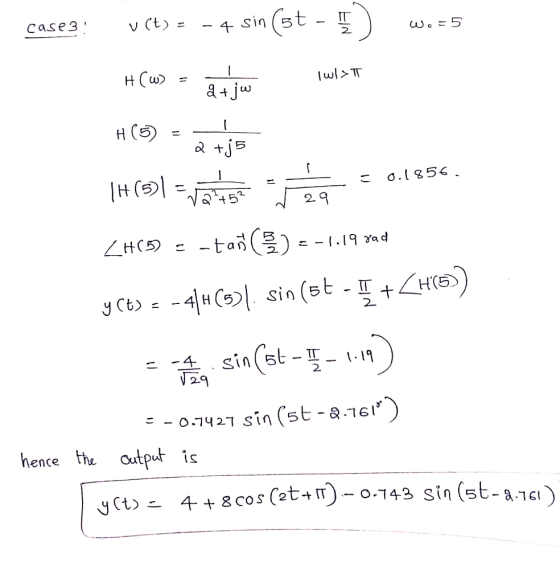 case3: v(t) = - 4 sin(5t - π/2) ω₀ = 5
H(ω) = 1/(2+jω) |ω|>π
H(5) = 1/(2+j5)
|H(5)| = 1/√(2²+5²) = 1/√29 = 0.1856.
∠H(5) = -tan⁻¹(5/2) = -1.19 rad
y(t) = -4|H(5)|. sin(5t - π/2 + ∠H(5))
= -4/√29 . sin(5t - π/2 - 1.19)
= - 0.7427 sin(5t - 2.761ʳ)
hence the output is
y(t) = 4 + 8cos(2t+π) - 0.743 sin(5t-2.761)